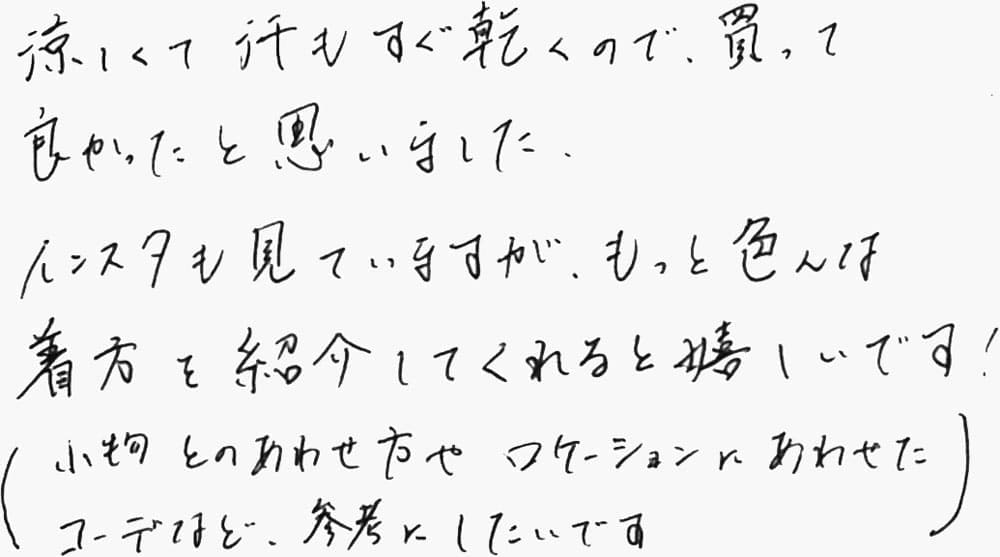 涼しくて 汗も すぐ乾くので、買って
良かったと思いました.
インスタも見ていますが、もっと色んな
着方を紹介してくれると嬉しいです!
(小物とのあわせ方や ロケーションにあわせた
コーデなど、参考にしたいです)